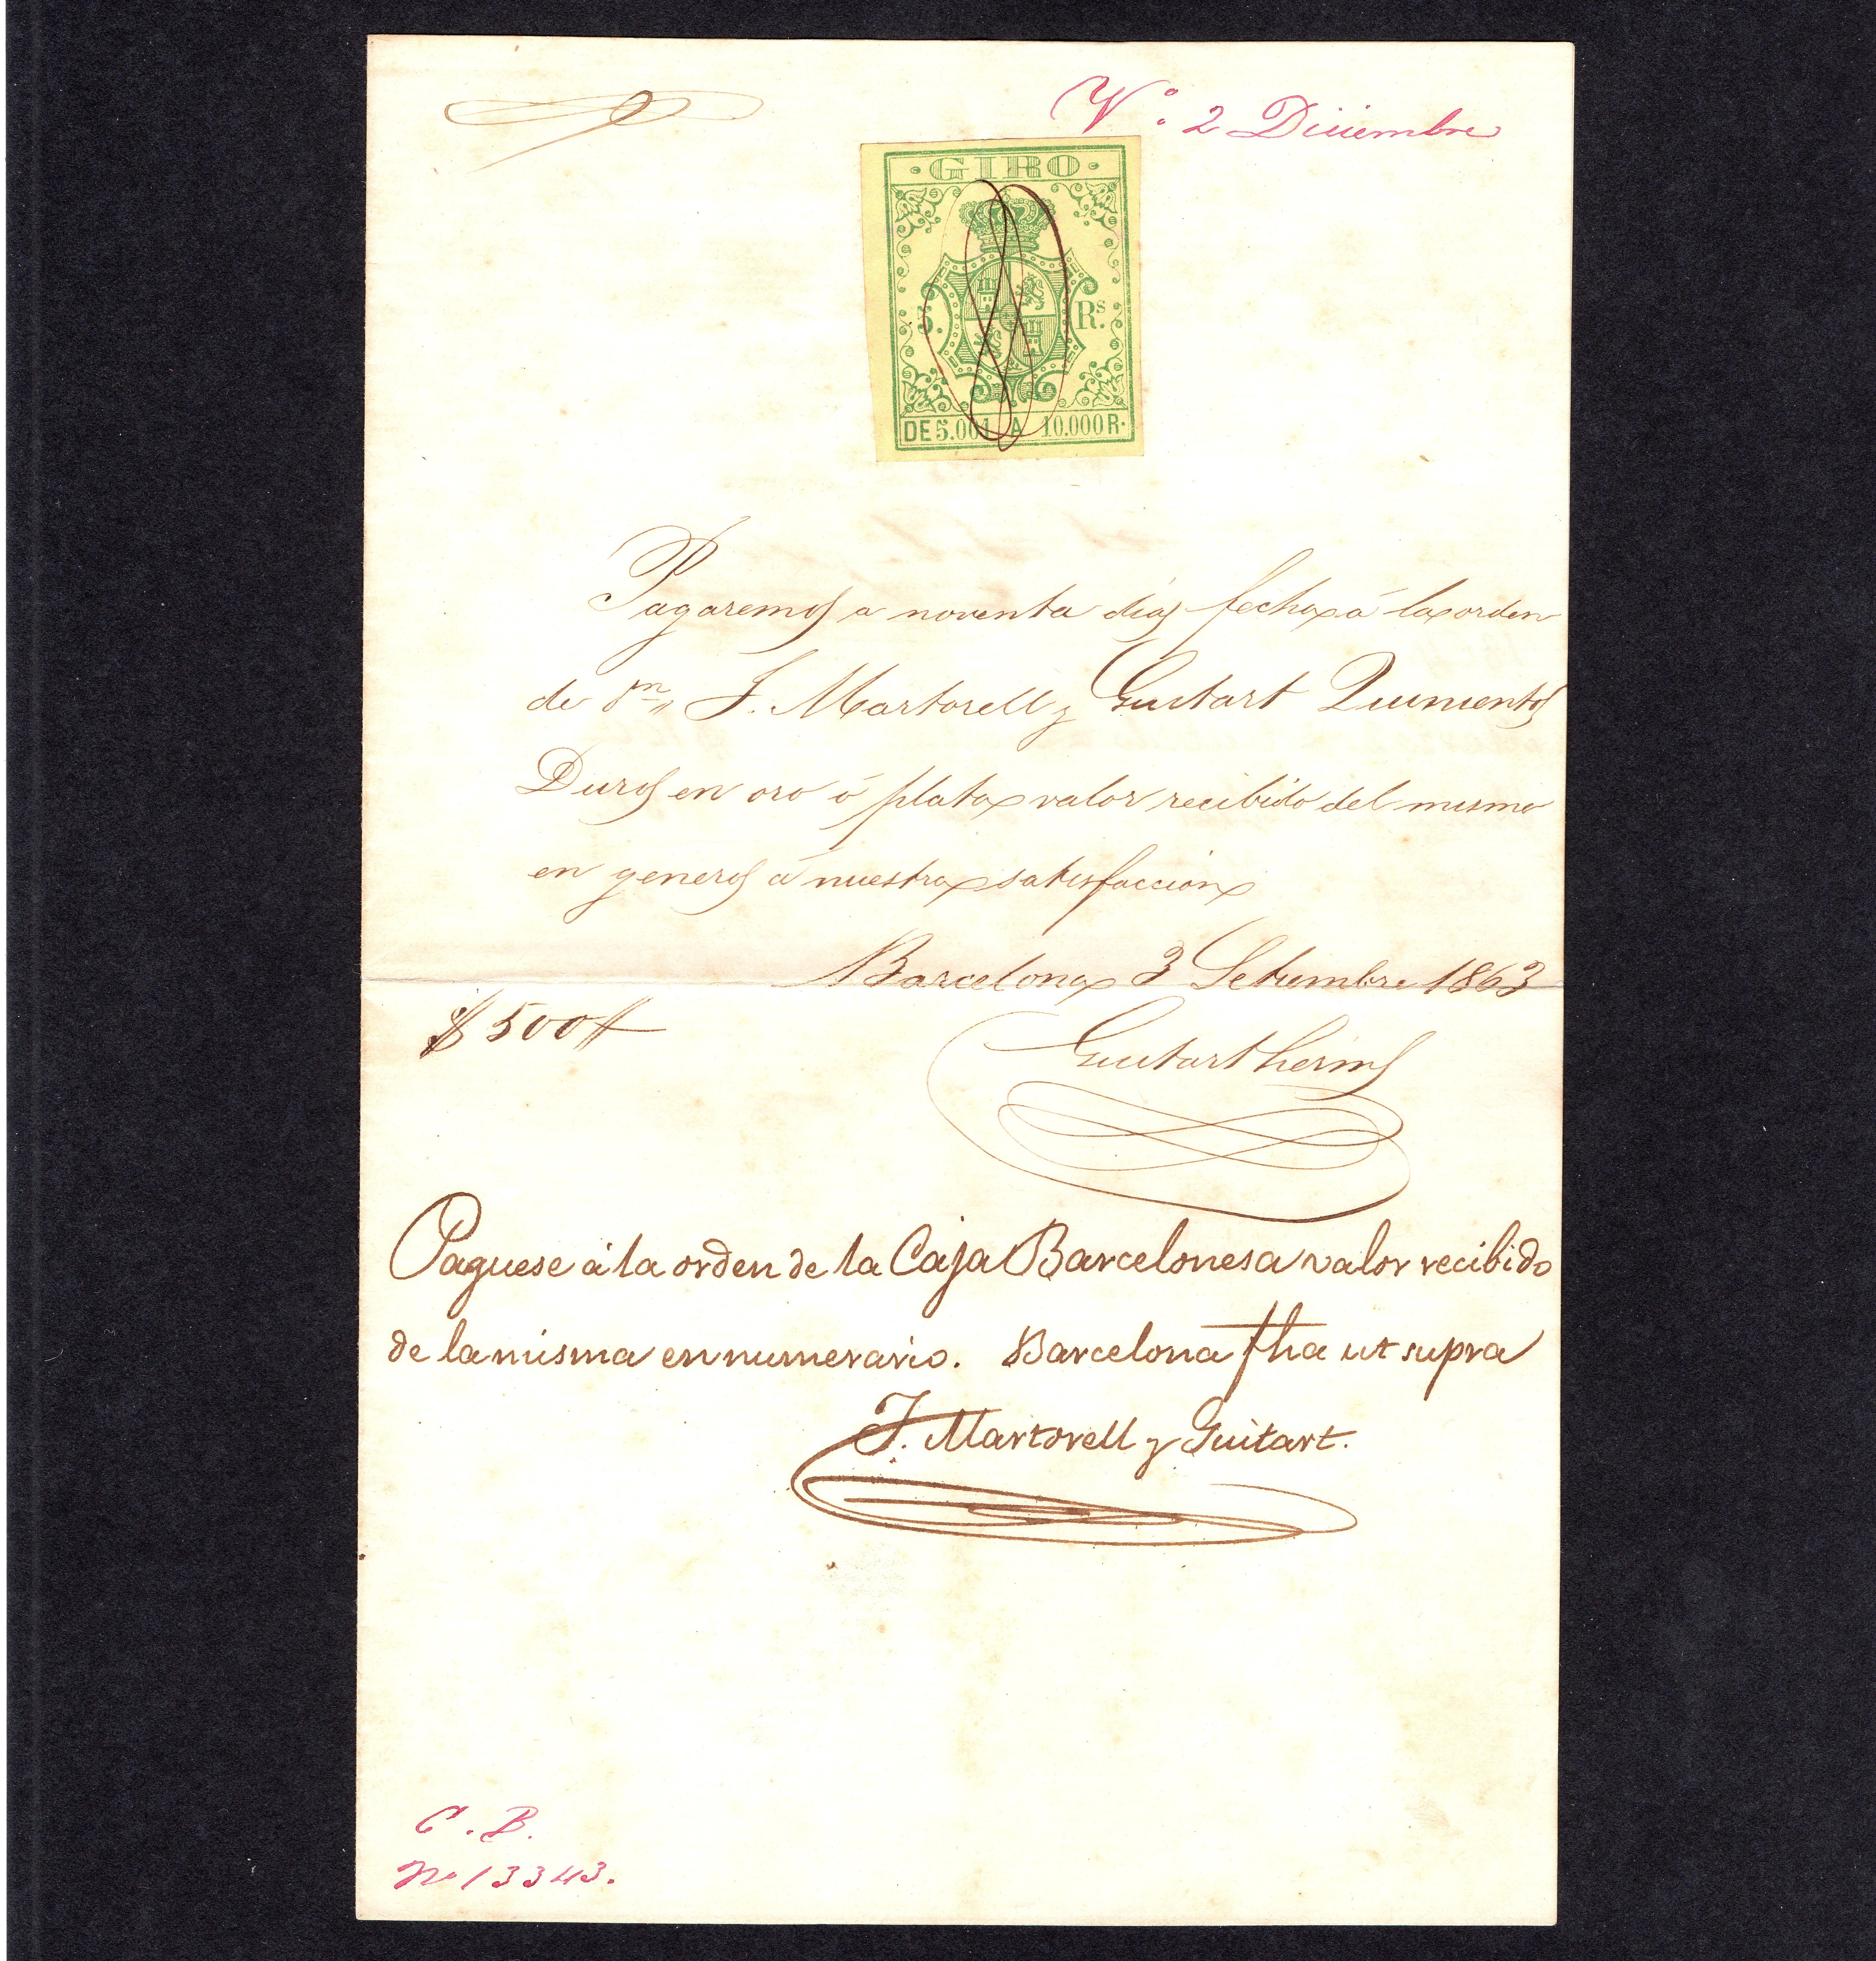 Vº. 2 Diciembre
·GIRO·
5. Rs.
DE 5.001 A 10.000 R.
Pagaremos a noventa dias fecha á la orden
de Dn. J. Martorell y Guitart Quinientos
Duros en oro ó plata valor recibido del mismo
en generos á nuestra satisfaccion
Barcelona 3 Setiembre 1863
$ 500
Guitart herms
Paguese á la orden de la Caja Barcelonesa valor recibido
de la misma en numerario. Barcelona fha ut supra
J. Martorell y Guitart.
C. B.
No 13343.